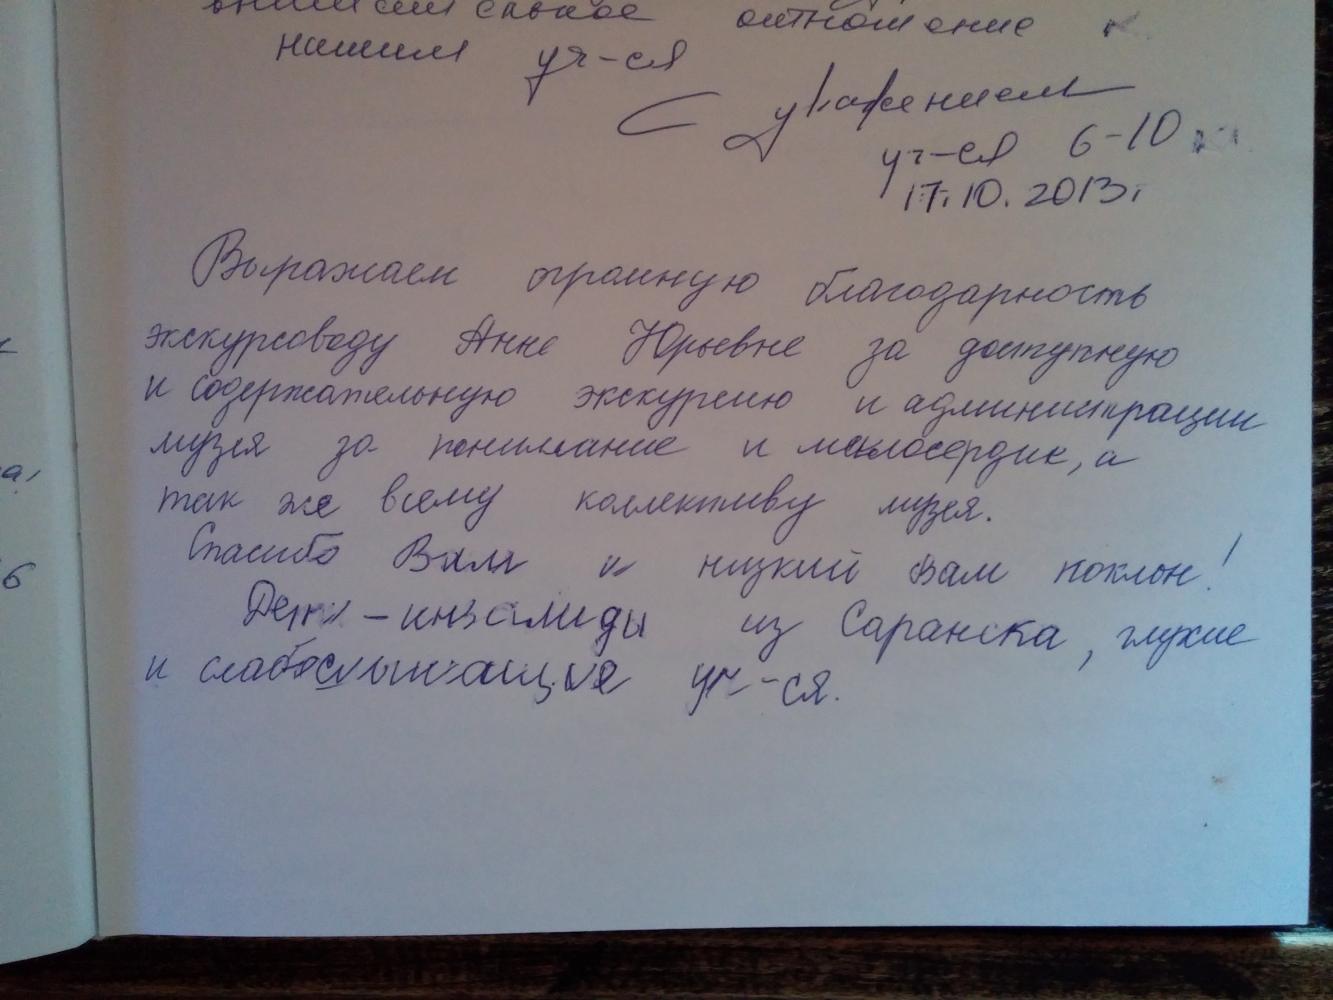 внимательное отношение к
нашим уч-ся
С уважением
уч-ся 6-10 кл.
17.10.2013г.
Выражаем огромную благодарность
экскурсоводу Анне Юрьевне за доступную
и содержательную экскурсию и администрации
музея за понимание и милосердие, а
так же всему коллективу музея.
Спасибо Вам и низкий вам поклон!
Дети-инвалиды из Саранска, глухие
и слабослышащие уч-ся.
а,
6